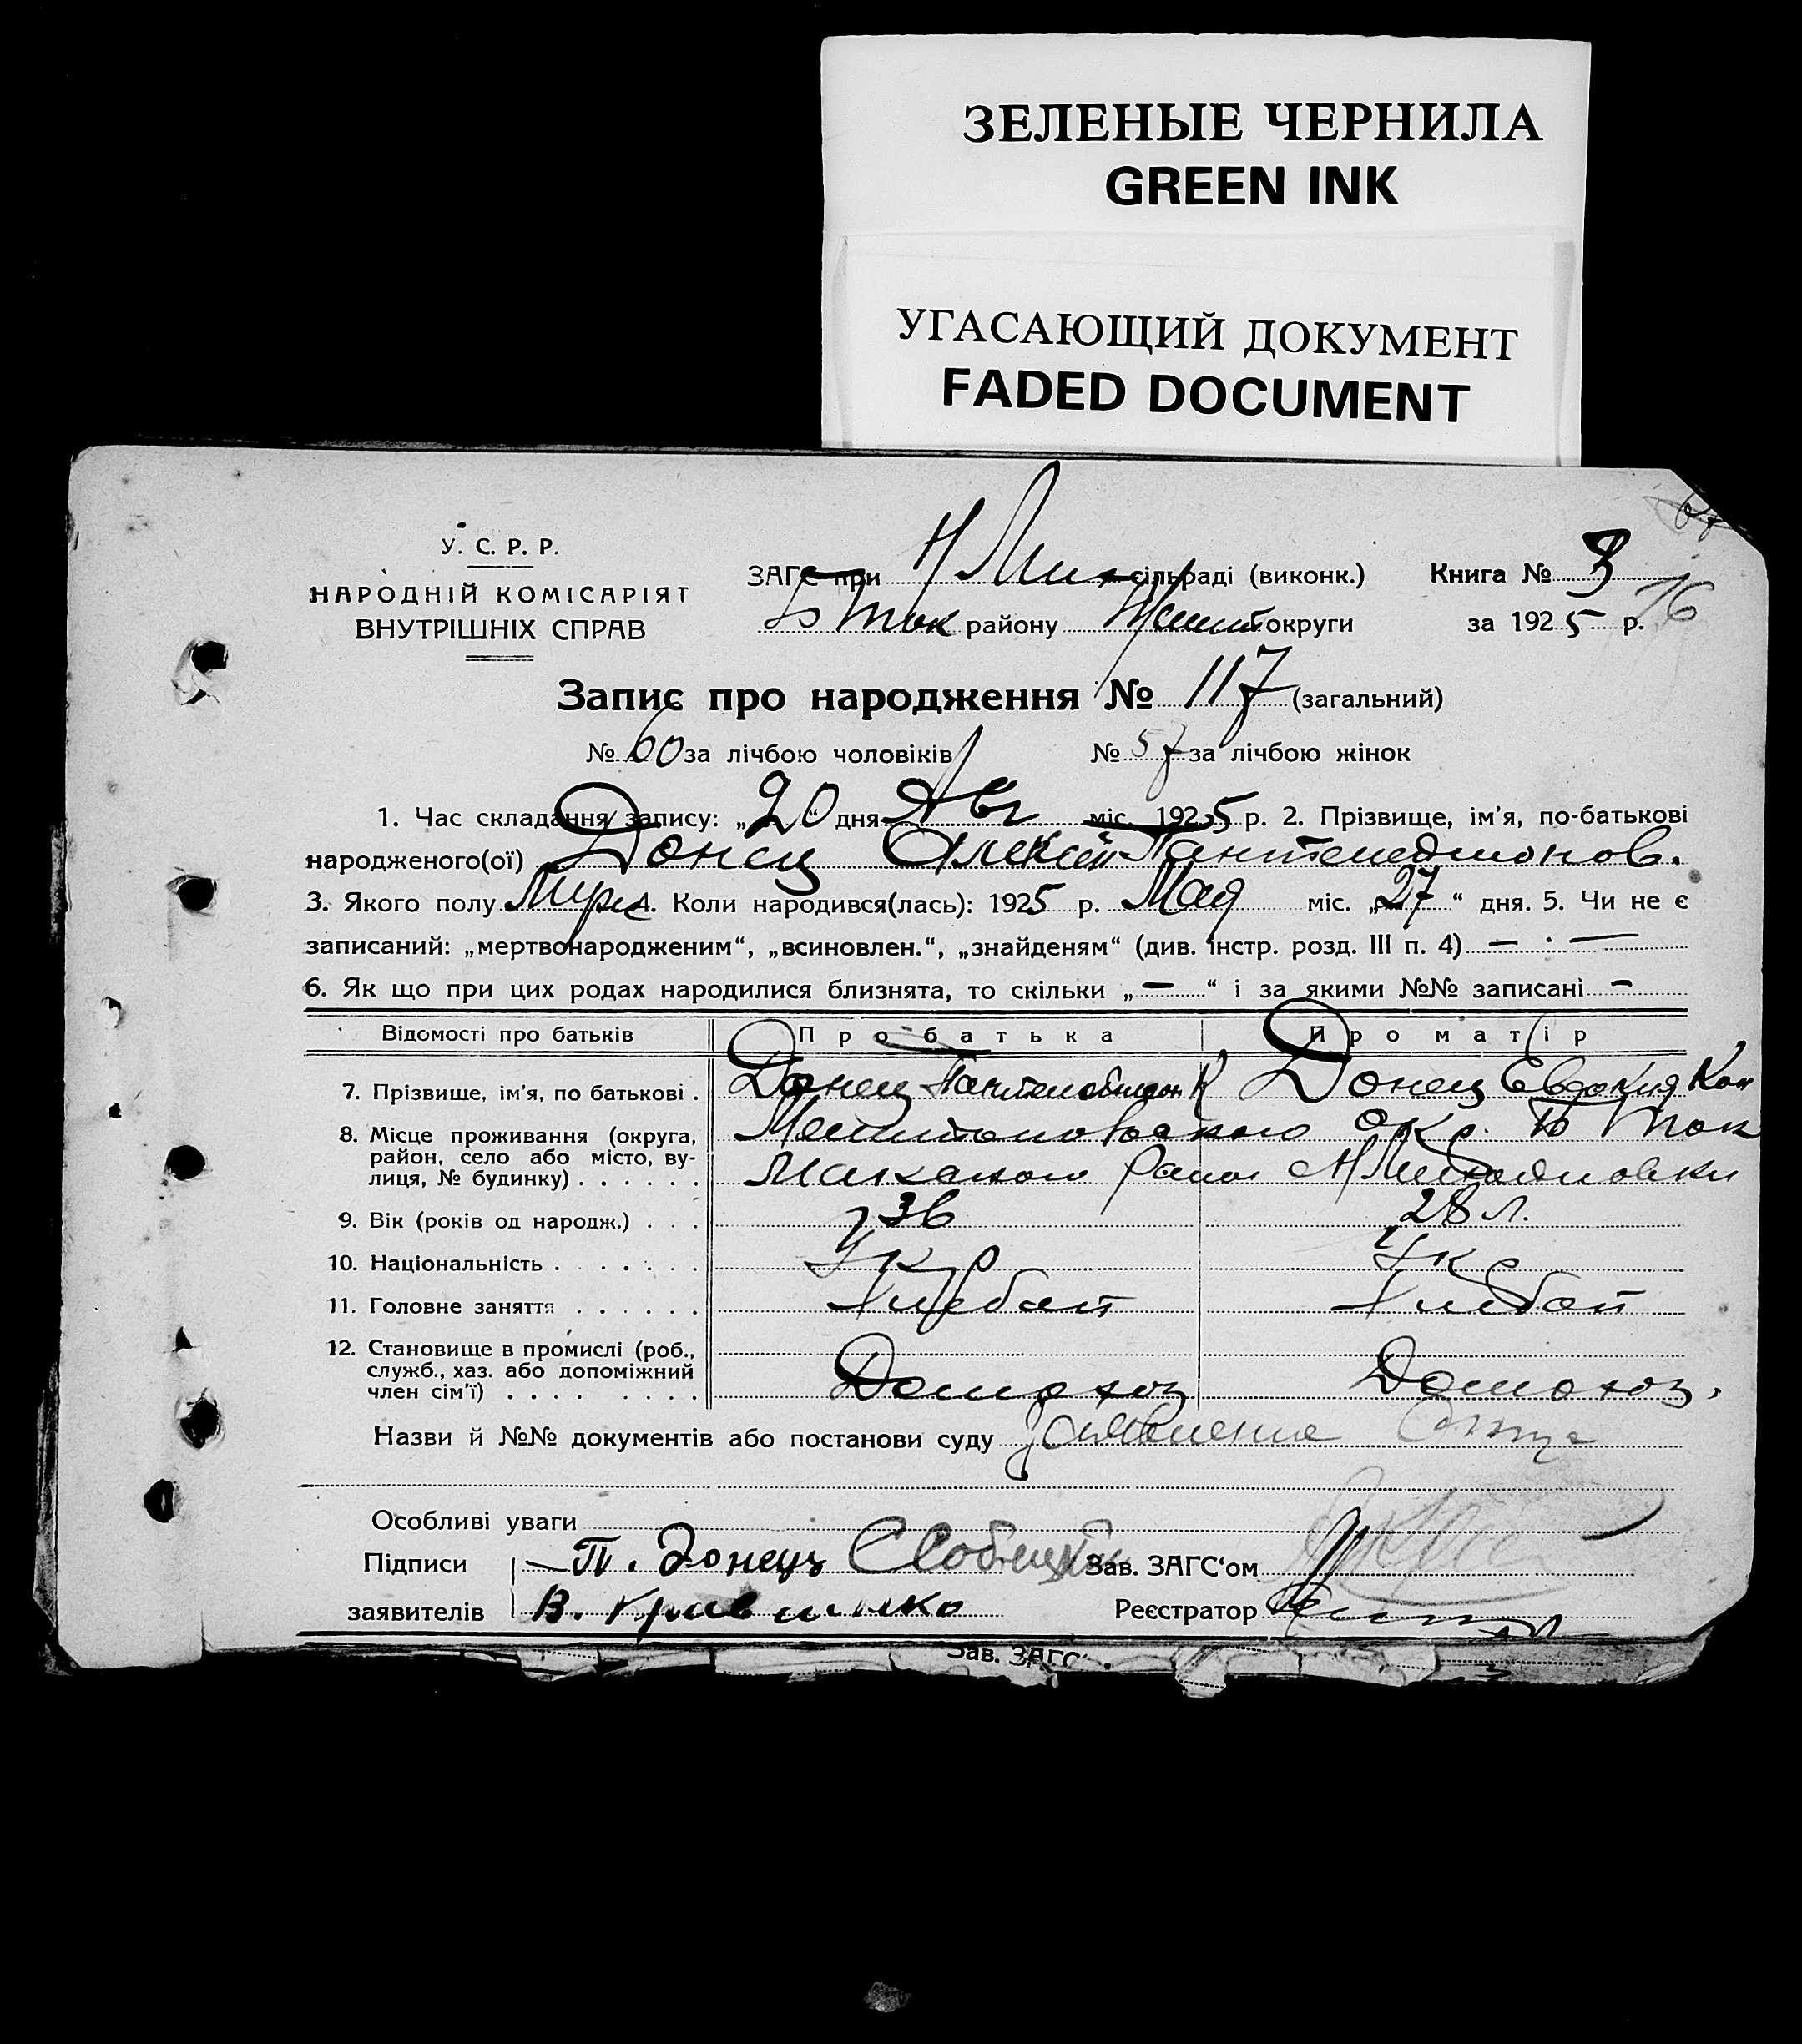 ЗЕЛЕНЫЕ ЧЕРНИЛА
GREEN INK
УГАСАЮЩИЙ ДОКУМЕНТ
FADED DOCUMENT
У. С. Р. Р.
НАРОДНІЙ КОМІСАРІЯТ
ВНУТРІШНІХ СПРАВ
ЗАГС при Н Мих сільраді (виконк.)
Б Ток району округи
Книга № 3
за 1925 р.
76
Запис про народження № 117 (загальний)
№ 60 за лічбою чоловіків № 57 за лічбою жінок
1. Час складання запису: „20“ дня Авг міс. 1925 р. 2. Прізвище, ім'я, по-батькові
народженого(ої) Донец Алексей
3. Якого полу Муж 4. Коли народився(лась): 1925 р. Мая міс. „27“ дня. 5. Чи не є
записаний: „мертвонародженим“, „всиновлен.“, „знайденям“ (див. інстр. розд. III п. 4) — · —
6. Як що при цих родах народилися близнята, то скільки „—“ і за якими №№ записані —
Відомості про батьків Про батька Про матір
7. Прізвище, ім'я, по батькові . Донец К Донец Евдокия Кон
8. Місце проживання (округа, район, село або місто, вулиця, № будинку) . . . . . . окр. Б Ток
Н
9. Вік (років од народж.) . . . 36 28 л.
10. Національність . . . . . . . Укр Укр
11. Головне заняття . . . . . . Хлебоп Хлебоп
12. Становище в промислі (роб., служб., хаз. або допоміжний член сім'ї) . . . . . . . . Домохоз Домохоз.
Назви й №№ документів або постанови суду Заявление Отца
Особливі уваги
Підписи П. Донец Зав. ЗАГС'ом
заявителів В. Реєстратор
Зав. ЗАГС'